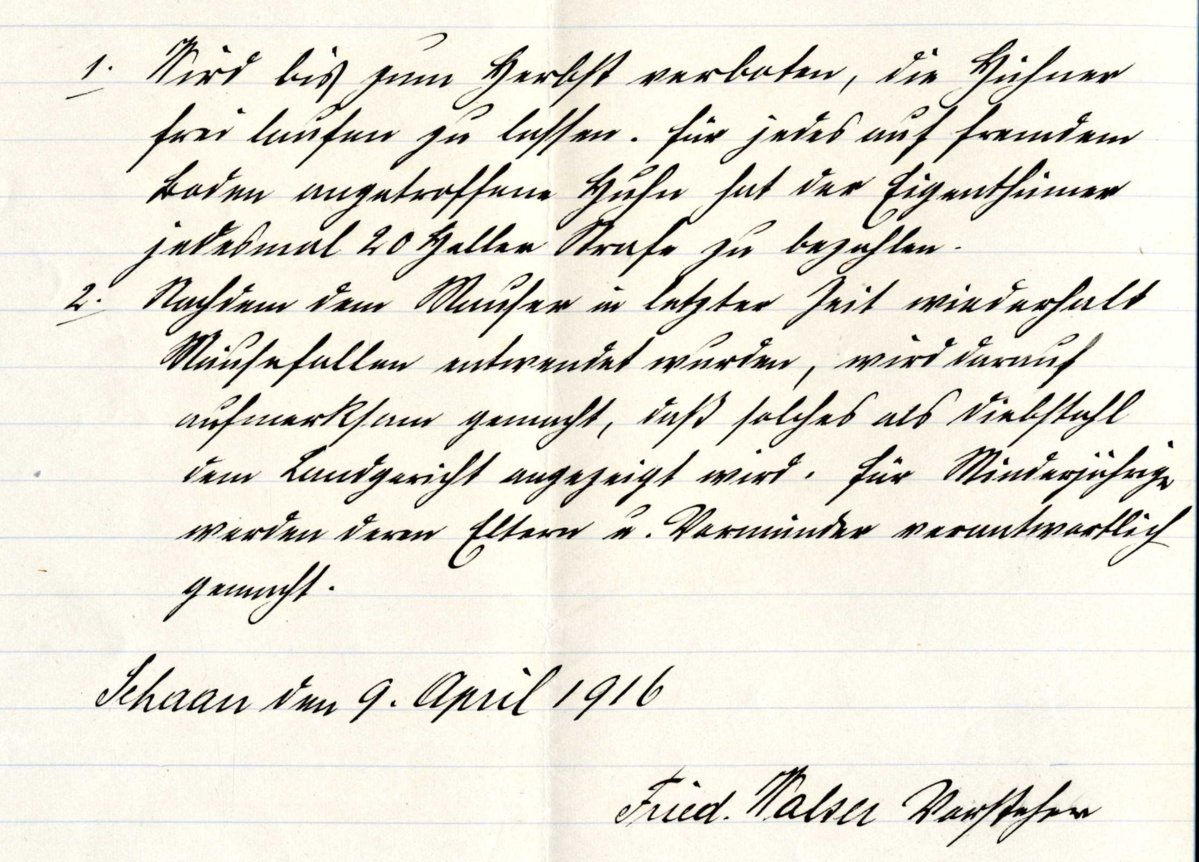 1. Wird bis zum Herbst verboten, die Hühner
frei laufen zu lassen. Für jedes auf fremdem
Boden angetroffene Huhn hat der Eigenthümer
jedesmal 20 Heller Strafe zu bezahlen.
2. Nachdem dem Mauser in letzter Zeit wiederholt
Mäusefallen entwendet wurden, wird darauf
aufmerksam gemacht, daß solches als Diebstahl
dem Landgericht angezeigt wird. Für Minderjährige
werden deren Eltern u. Vormünder verantwortlich
gemacht.
Schaan den 9. April 1916
Fried. Walser Vorsteher